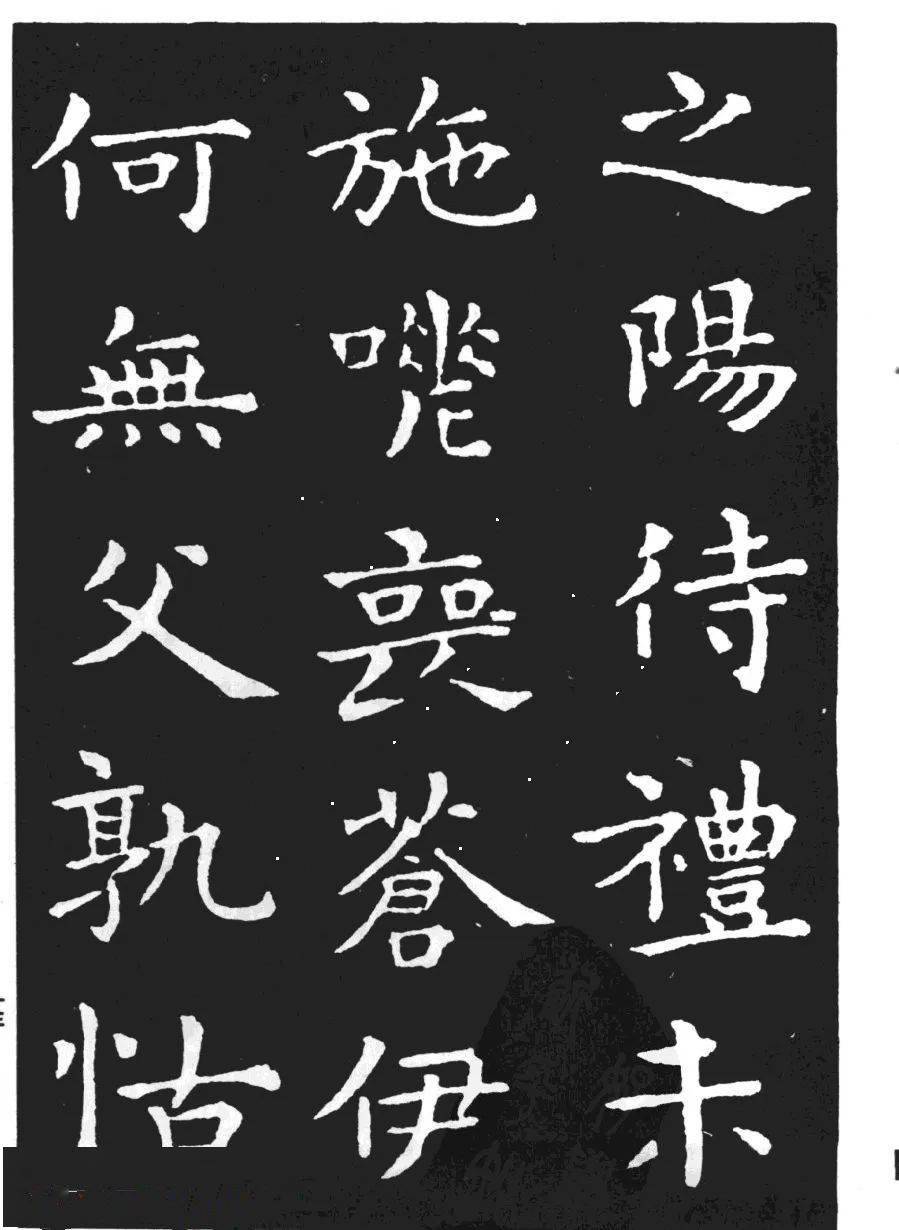 之陽待禮未
施嘥喪蒼伊
何無父孰怙